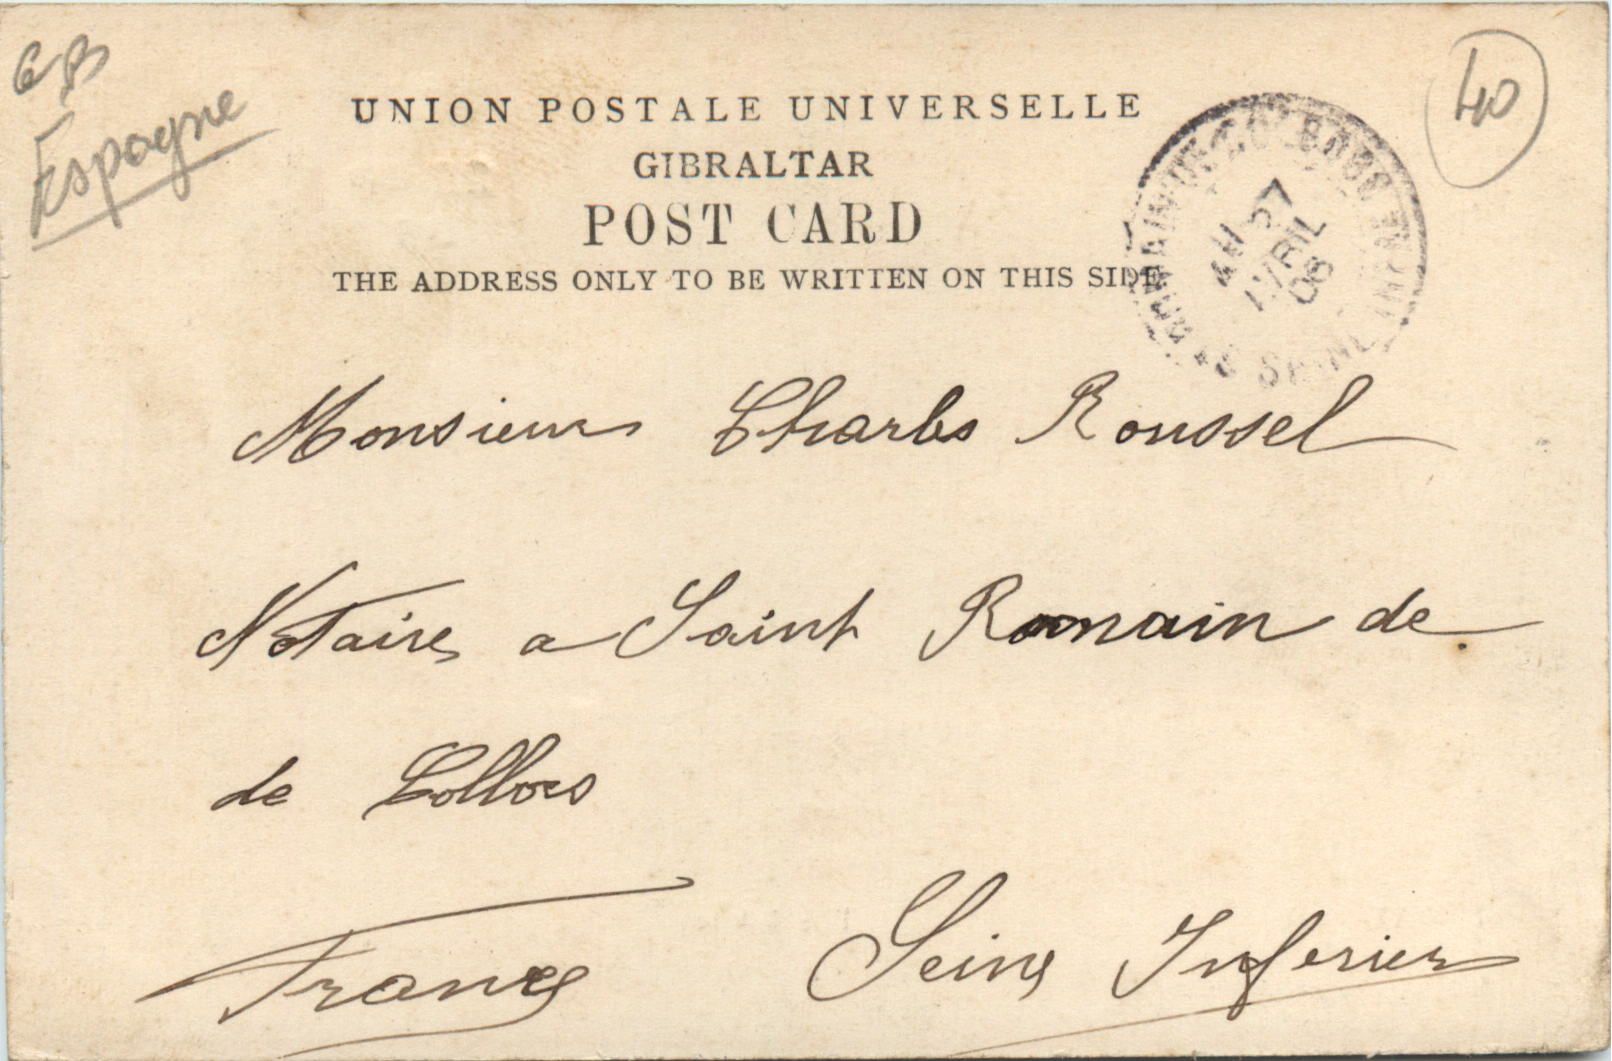 GB
Espagne
40
UNION POSTALE UNIVERSELLE
GIBRALTAR
POST CARD
THE ADDRESS ONLY TO BE WRITTEN ON THIS SIDE
AVRIL
08
Monsieur Charles Roussel
Notaire a Saint Romain de
de Colbos
France Seine Inferieur